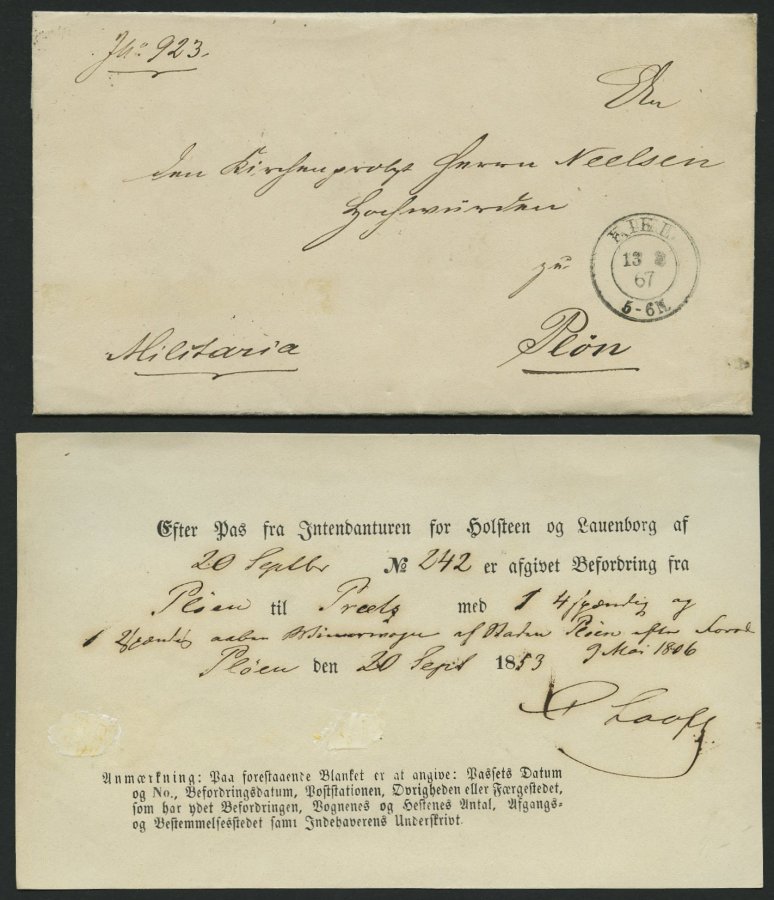 923.
An
den Kirchenprobst Herrn Neelsen
Hochwürden
KIEL
13
67
5-6N
zu
Militaria
Plön
Efter Pas fra Intendanturen for Holsteen og Lauenborg af
20 Septbr № 242 er afgivet Befordring fra
Pløen til Preetz med 1 4spændig og
1 2spændig aaben af Staden Pløen efter
9 Mai 1806
Pløen den 20 Sept 1853
Anmærkning: Paa forestaaende Blanket er at angive: Passets Datum
og No., Befordringsdatum, Poststationen, Øvrigheden eller Færgestedet,
som har ydet Befordringen, Vognenes og Hestenes Antal, Afgangs-
og Bestemmelsesstedet samt Indehaverens Underskrivt.